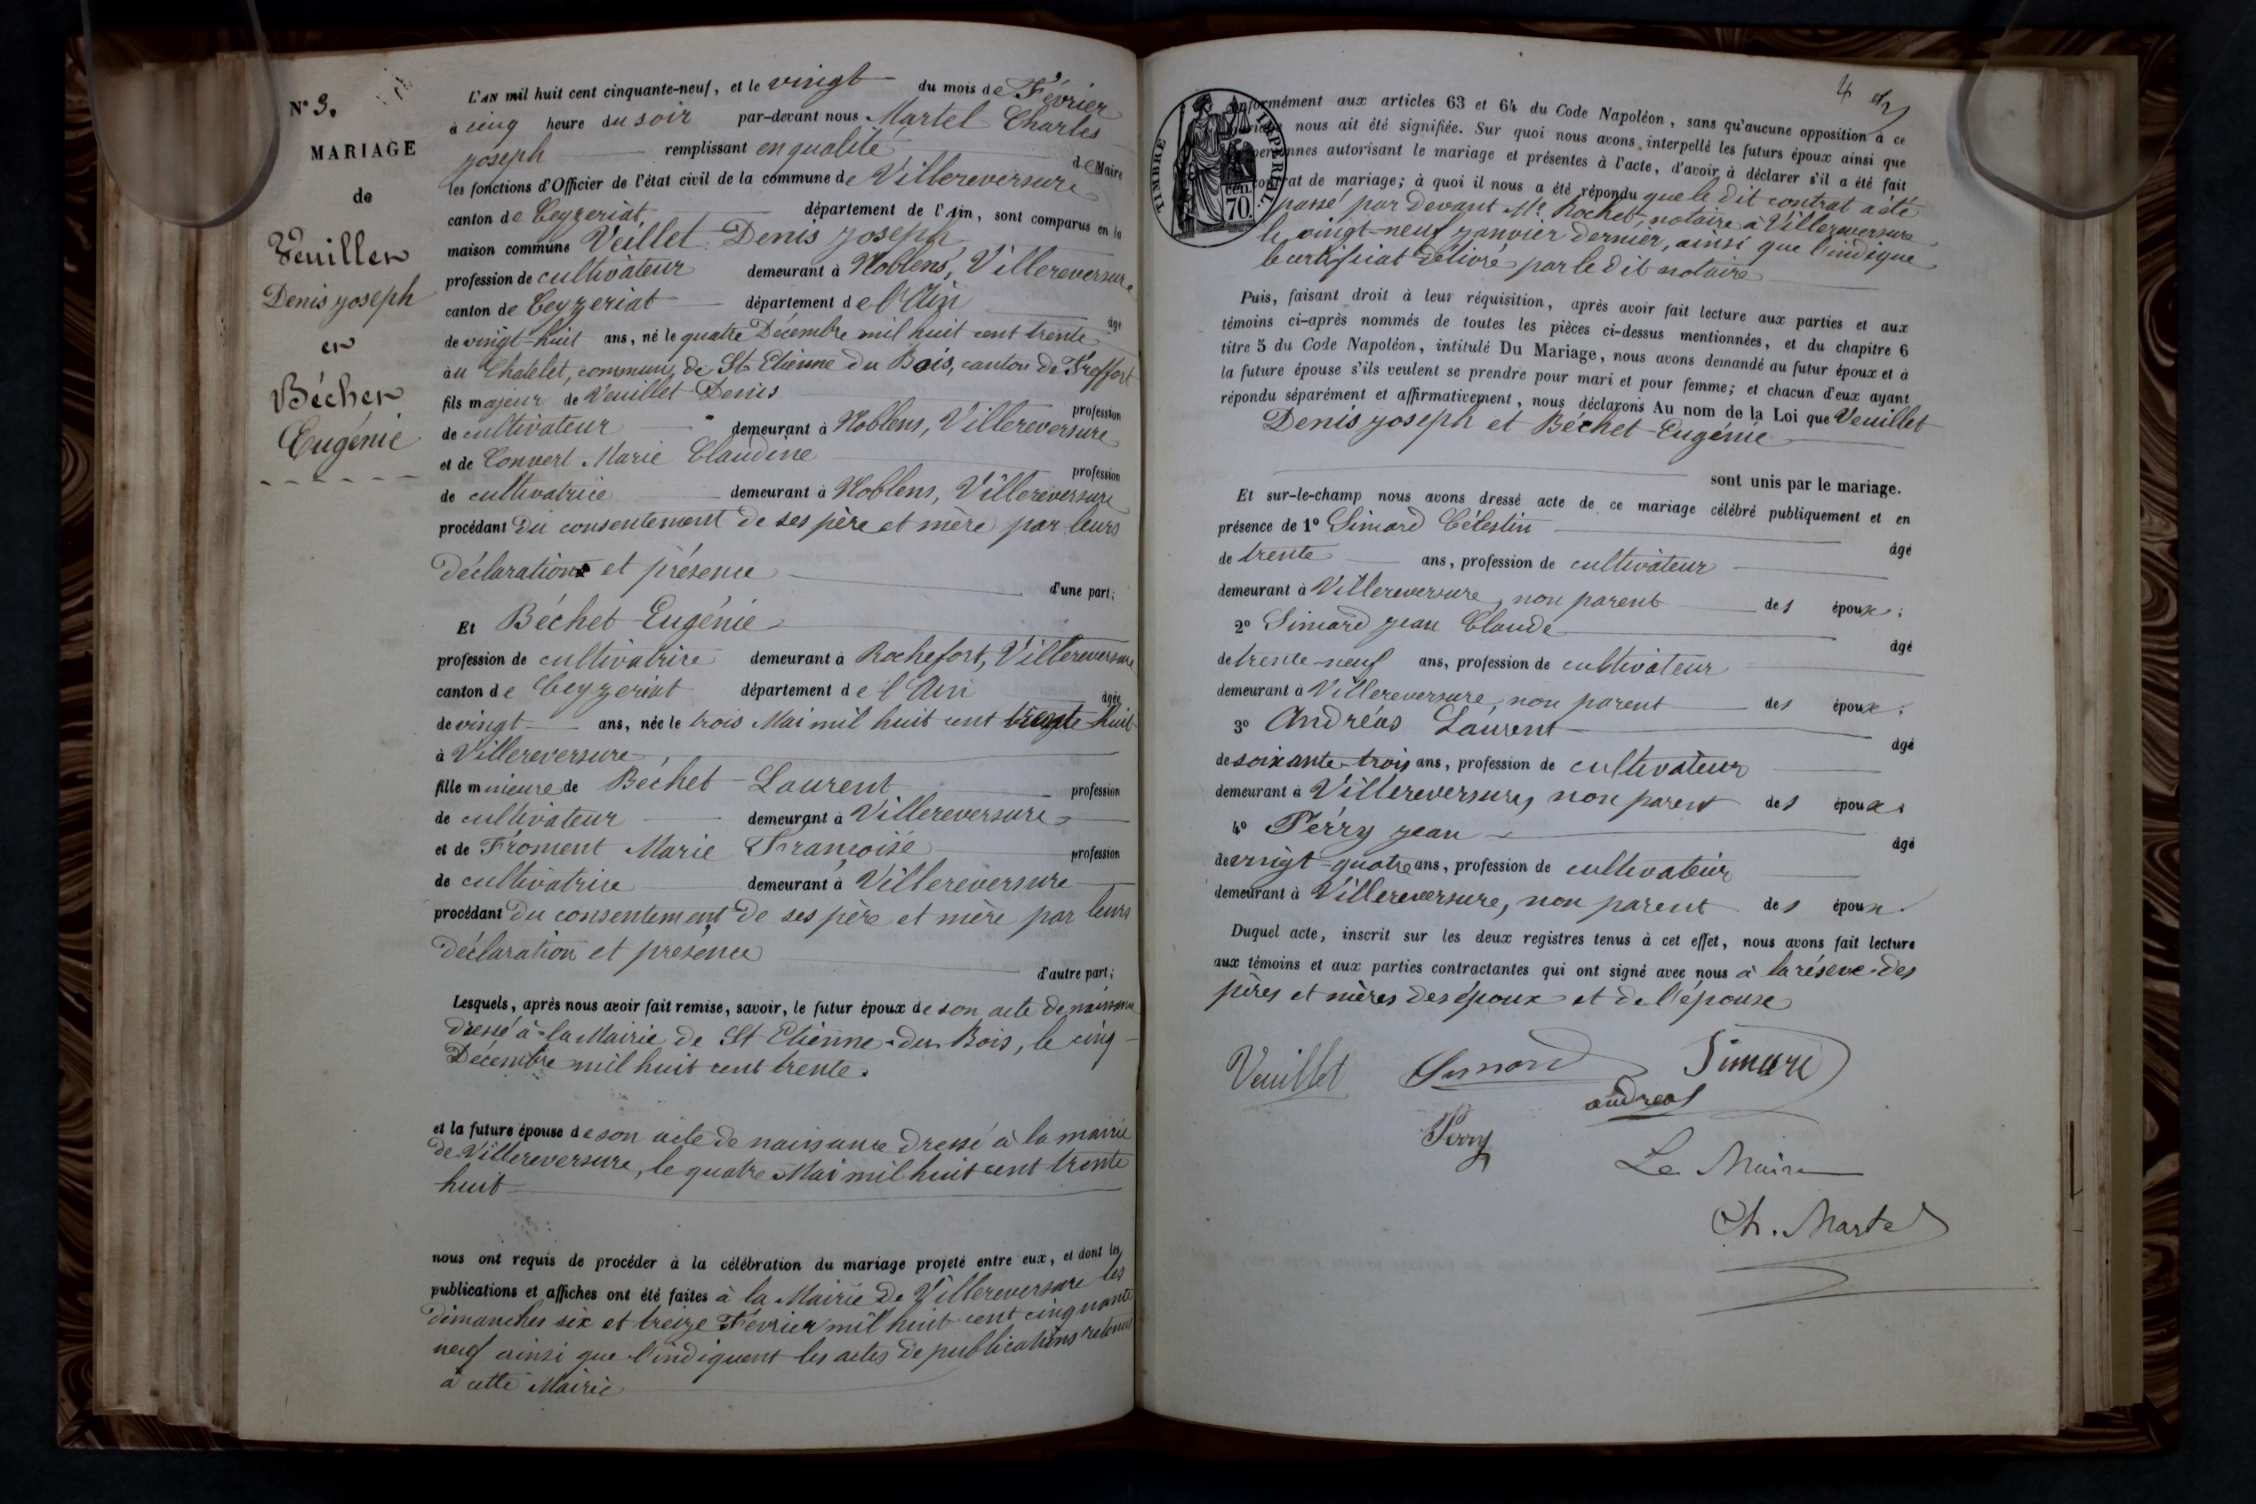 N° 3.
MARIAGE
de
Veuillet
Denis joseph
et
Béchet
Eugénie
L'AN mil huit cent cinquante-neuf, et le vingt du mois de Février
à cinq heure du soir par-devant nous Martel Charles
joseph remplissant en qualité de Maire
les fonctions d'Officier de l'état civil de la commune de Villereversure
canton de Ceyzeriat département de l'Ain, sont comparus en la
maison commune Veillet Denis joseph
profession de cultivateur demeurant à Noblens, Villereversure
canton de Ceyzeriat département de l'Ain âgé
de vingt-huit ans, né le quatre Décembre mil huit cent trente
au Chatelet, commune de St Etienne du Bois, canton de Treffort
fils majeur de Veuillet Denis profession
de cultivateur demeurant à Noblens, Villereversure
et de Convert Marie Claudine profession
de cultivatrice demeurant à Noblens, Villereversure
procédant du consentement de ses père et mère par leurs
déclaration et présence d'une part;
Et Béchet Eugénie
profession de cultivatrice demeurant à Rochefort, Villereversure
canton de Ceyzeriat département de l'Ain âgée
de vingt ans, née le trois Mai mil huit cent trente-huit
à Villereversure
fille mineure de Béchet Laurent profession
de cultivateur demeurant à Villereversure
et de Froment Marie Françoise profession
de cultivatrice demeurant à Villereversure
procédant du consentement de ses père et mère par leurs
déclaration et présence d'autre part;
Lesquels, après nous avoir fait remise, savoir, le futur époux de son acte de naissance
dressé à la Mairie de St Etienne-du-Bois, le cinq
Décembre mil huit cent trente.
et la future épouse de son acte de naissance dressé à la mairie
de Villereversure, le quatre Mai mil huit cent trente
huit
nous ont requis de procéder à la célébration du mariage projeté entre eux, et dont les
publications et affiches ont été faites à la Mairie de Villereversure les
dimanches six et treize Février mil huit cent cinquante
neuf ainsi que l'indiquent les actes de publications retenus
à cette Mairie
4
TIMBRE IMPERIAL
CEN.
70.
conformément aux articles 63 et 64 du Code Napoléon, sans qu'aucune opposition à ce
mariage nous ait été signifiée. Sur quoi nous avons interpellé les futurs époux ainsi que
personnes autorisant le mariage et présentes à l'acte, d'avoir à déclarer s'il a été fait
contrat de mariage; à quoi il nous a été répondu que le dit contrat a été
passé par devant Me Rochet, notaire à Villereversure
le vingt-neuf janvier dernier, ainsi que l'indique
le certificat délivré par le dit notaire
Puis, faisant droit à leur réquisition, après avoir fait lecture aux parties et aux
témoins ci-après nommés de toutes les pièces ci-dessus mentionnées, et du chapitre 6
titre 5 du Code Napoléon, intitulé Du Mariage, nous avons demandé au futur époux et à
la future épouse s'ils veulent se prendre pour mari et pour femme; et chacun d'eux ayant
répondu séparément et affirmativement, nous déclarons Au nom de la Loi que Veuillet
Denis joseph et Béchet Eugénie
sont unis par le mariage.
Et sur-le-champ nous avons dressé acte de ce mariage célébré publiquement et en
présence de 1° Simard Célestin âgé
de trente ans, profession de cultivateur
demeurant à Villereversure, non parent des époux;
2° Simard jean Claude âgé
de trente-neuf ans, profession de cultivateur
demeurant à Villereversure, non parent des époux;
3° Andréas Laurent âgé
de soixante-trois ans, profession de cultivateur
demeurant à Villereversure, non parent des époux
4° Pérry jean âgé
de vingt-quatre ans, profession de cultivateur
demeurant à Villereversure, non parent des époux.
Duquel acte, inscrit sur les deux registres tenus à cet effet, nous avons fait lecture
aux témoins et aux parties contractantes qui ont signé avec nous à la réserve des
pères et mères des époux et de l'épouse
Veuillet Simard Simard
andreas
Perry
Le Maire
Ch. Martel